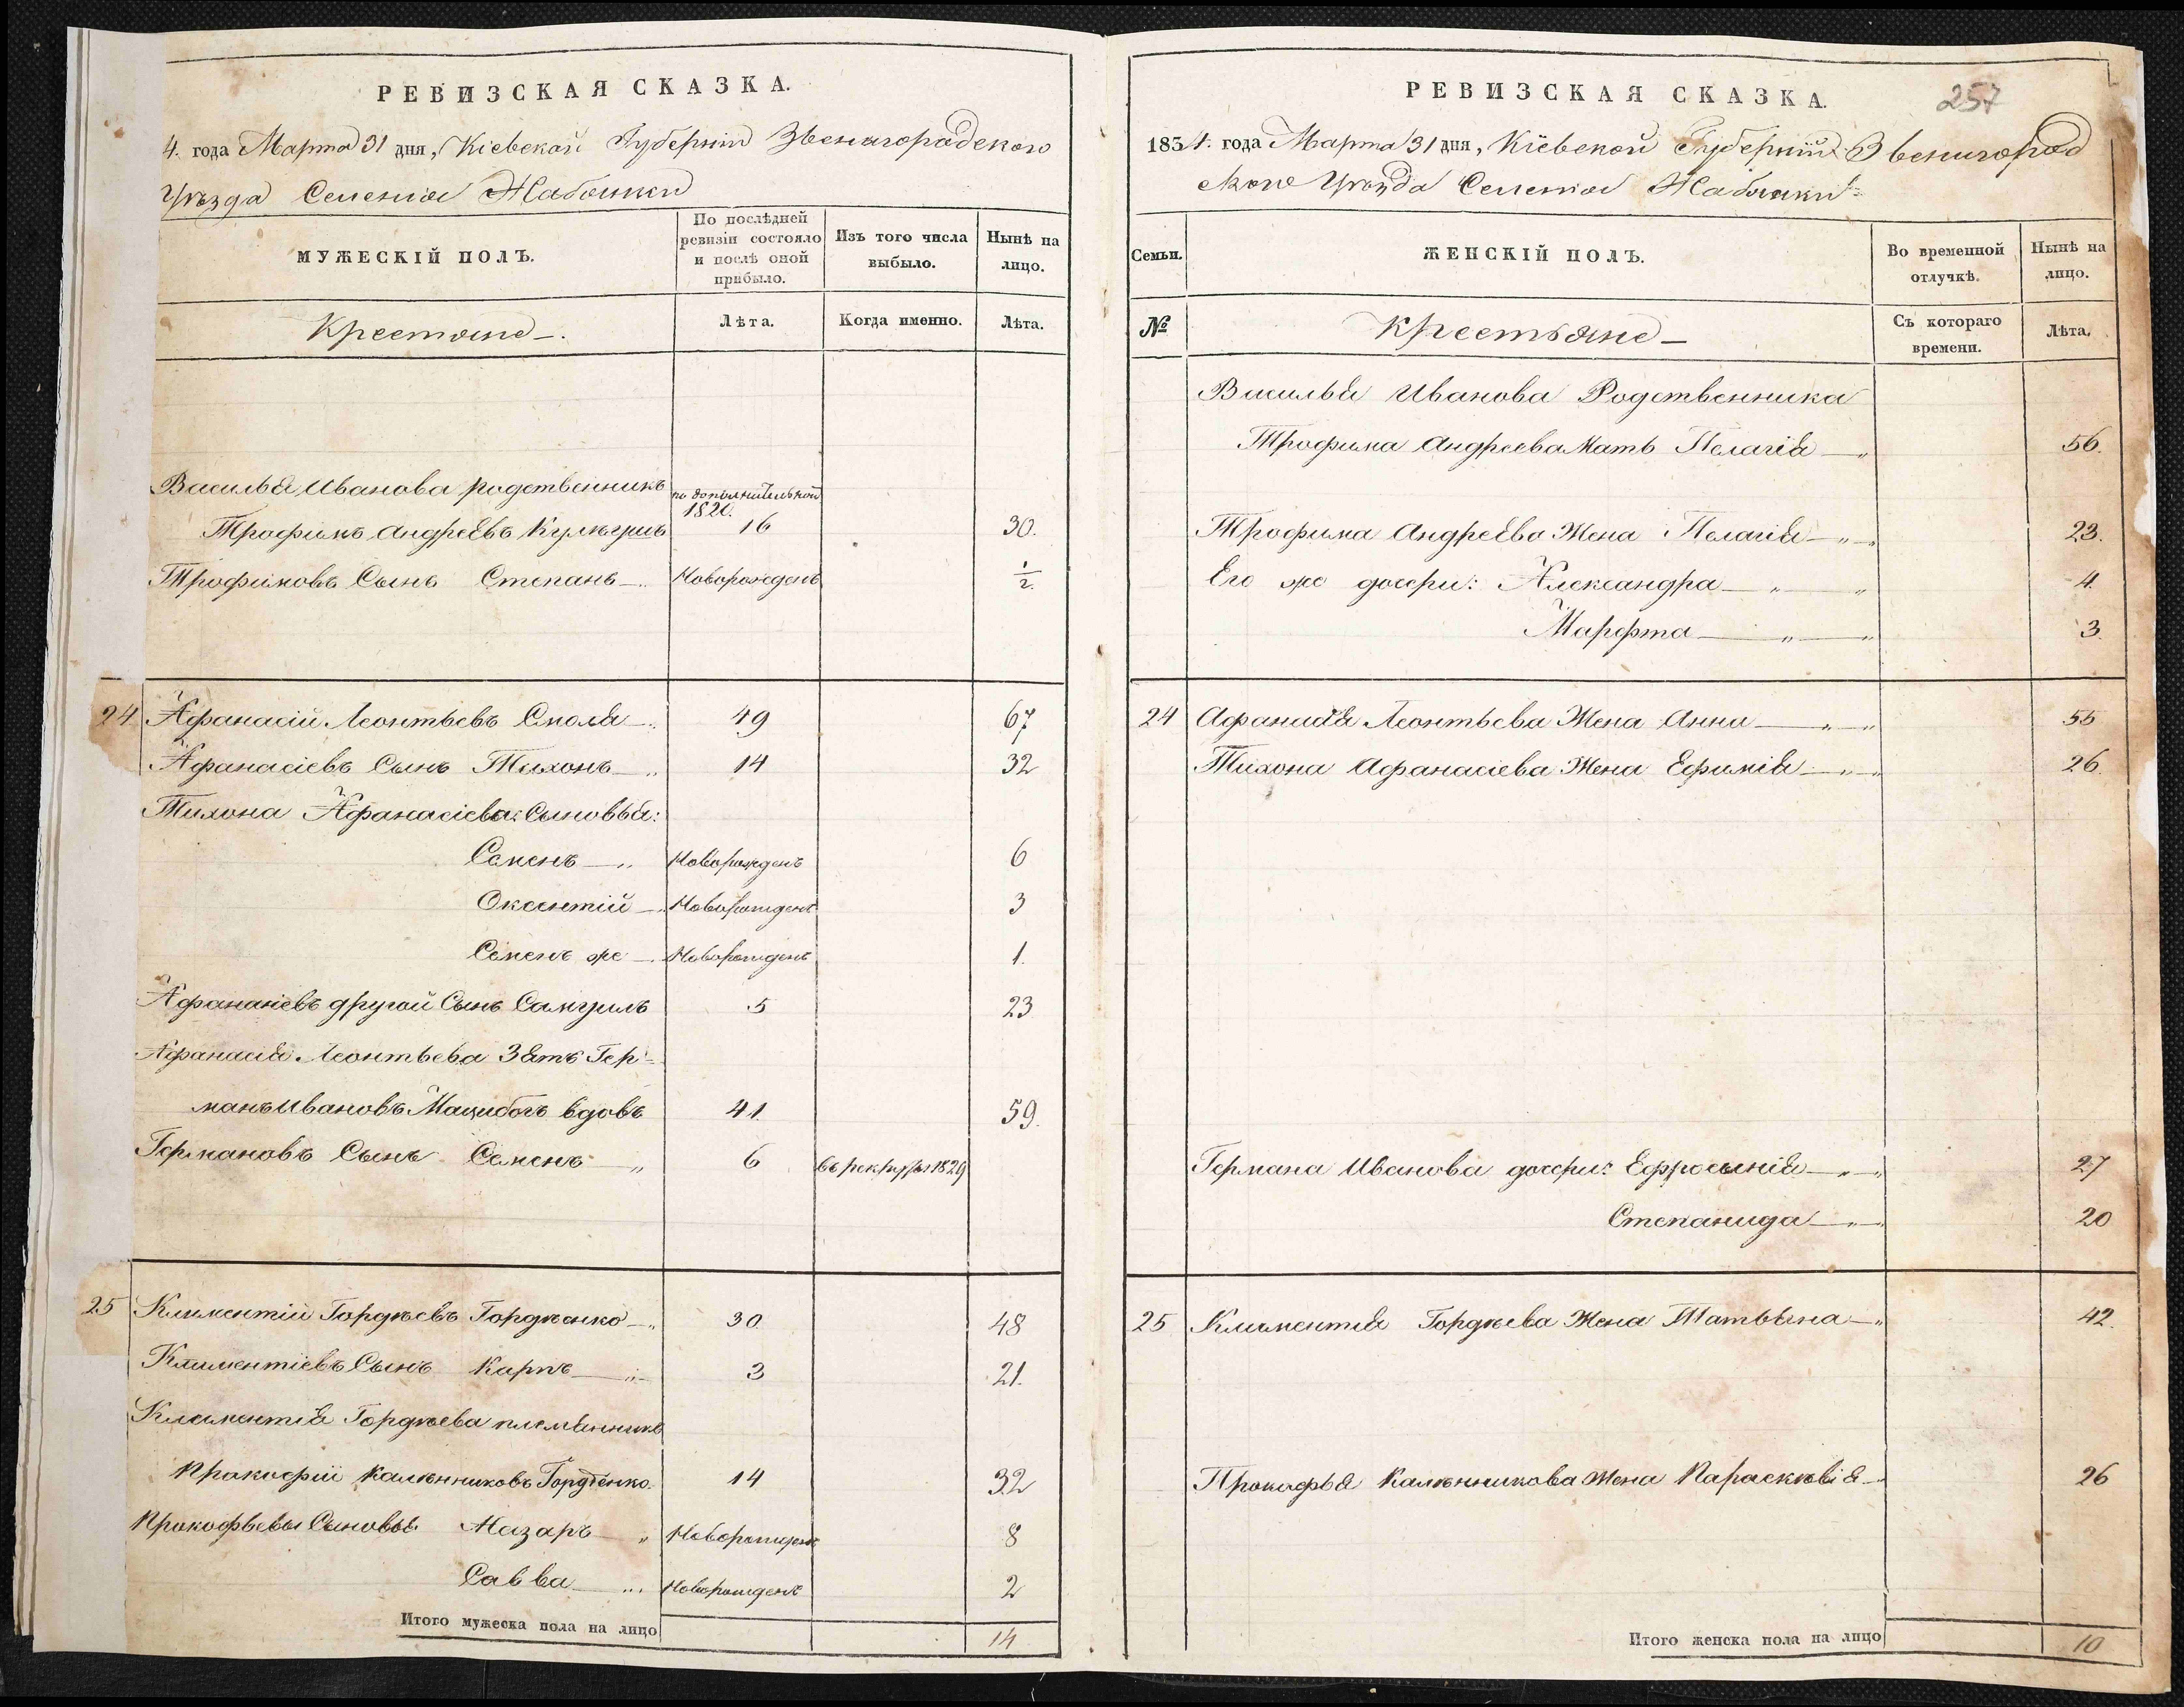 РЕВИЗСКАЯ СКАЗКА.
4. года Марта 31 дня, Кіевской Губерніи Звенигородского
Уѣзда Селенія Жабоинки
МУЖЕСКІЙ ПОЛЪ.
По послѣдней ревизіи состояло и послѣ оной прибыло.
Изъ того числа выбыло.
Нынѣ на лицо.
Крестьяне
Лѣта.
Когда именно.
Лѣта.
Василья Иванова родственникъ по дополнительной 1820.
Трофимъ Андреевъ 16 30.
Трофимовъ Сынъ Степанъ Новорожденъ 1/2.
24 Афанасій Леонтьевъ Смола 49 67
Афанасіевъ Сынъ Тихонъ 14 32
Тихона Афанасіева Сыновья:
Семенъ Новорожденъ 6
Оксентій Новорожденъ 3
Семенъ же Новорожденъ 1.
Афанасіевъ другой Сынъ Самуилъ 5 23
Афанасія Леонтьева Зять Гер-
манъ Ивановъ вдовъ 41. 59.
Германовъ Сынъ Семенъ 6 въ рекруты 1829
25 Климентій Гордѣевъ Гордѣенко 30. 48
Климентіевъ Сынъ Карпъ 3 21.
Климентія Гордѣева племянникъ
Прокофій Калѣнниковъ Гордѣенко. 14 32
Прокофьевы Сыновья Назаръ Новорожденъ 8
Савва Новорожденъ 2
Итого мужеска пола на лицо 14
257
РЕВИЗСКАЯ СКАЗКА.
1834. года Марта 31 дня, Кіевской Губерніи Звенигород
ского Уѣзда Селенія Жабоинки
Семьи.
ЖЕНСКІЙ ПОЛЪ.
Во временной отлучкѣ.
Нынѣ на лицо.
№
Крестьяне
Съ котораго времени.
Лѣта.
Василья Иванова Родственника
Трофима Андреева Мать Пелагія 56.
Трофима Андреева Жена Пелагія 23.
Его же дочери: Александра 4.
Марфта 3.
24 Афанасія Леонтьева Жена Анна 55
Тихона Афанасіева Жена Ефимія 26.
Германа Иванова дочери: Ефросинія 27
Степанида 20
25 Климентія Гордѣева Жена Татьяна 42.
Прокофья Калѣнникова Жена Параскѣвія 26
Итого женска пола на лицо 10